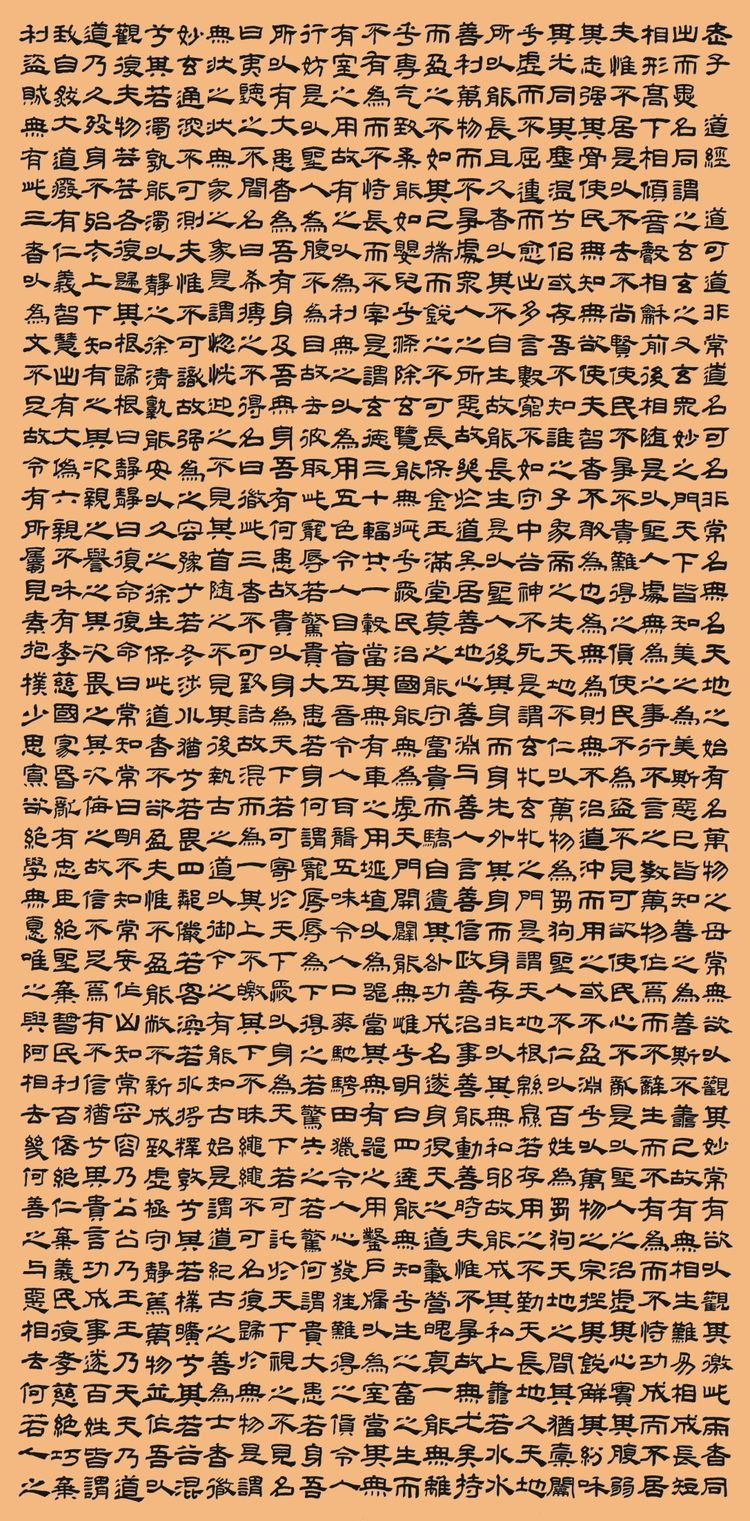 老子　道經　道可道非常道名可名非常名無名天地之始有名萬物之母常無欲以觀其妙常有欲以觀其徼此兩者同
出而異名同謂之玄玄之又玄眾妙之門天下皆知美之為美斯惡已皆知善之為善斯不善已故有無相生難易相成長短
相形高下相傾音聲相龢前後相随是以聖人處無為之事行不言之教萬物作焉而不辭生而不有為而不恃功成而不居
夫惟不居是以不去不尚賢使民不爭不貴難得之貨使民不為盜不見可欲使民心不亂是以聖人之治虛其心實其腹弱
其志强其骨使民無知無欲使夫智者不敢為也為無為則無不治道沖而用之或不盈淵乎以萬物之宗挫其銳解其紛和
其光同其塵湛兮佀或存吾不知誰之子象帝之先天地不仁以萬物為芻狗聖人不仁以百姓為芻狗天地之間其猶橐籥
乎虛而不屈動而愈出多言數窮不如守中谷神不死是謂玄牝玄牝之門是謂天地根綿綿若存用之不勤天長地久天地
所以能長且久者以其不自生故能長生是以聖人後其身而身先外其身而身存非以其無私邪故能成其私上善若水水
善利萬物而不爭處眾人之所惡故幾於道矣居善地心善淵与善人言善信政善治事善能動善時夫惟不爭故無尤矣持
而盈之不如其已揣而銳之不可長保金玉滿堂莫之能守富貴而驕自遺其咎功成名遂身退天之道載營魄抱一能無離
乎專氣致柔能如嬰兒乎滌除玄覽能無疵乎愛民治國能無為乎天門開闔能無雌乎明白四達能無知乎生之畜之生而
不有為而不恃長而不宰是謂玄德三十輻共一轂當其無有車之用埏埴以為器當其無有器之用鑿戶牖以為室當其無
有室之用故有之以為利無之以為用五色令人目盲五音令人耳聾五味令人口爽馳騁田獵令人心發狂難得之貨令人
行妨是以聖人為腹不為目故去彼取此寵辱若驚貴大患若身何謂寵辱辱為下得之若驚失之若驚何謂貴大患若身吾
所以有大患者為吾有身及吾無身吾有何患故貴以身為天下若可寄於天下愛以身為天下若可託於天下視之不見名
曰夷聽之不聞名曰希搏之不得名曰微此三者不可致詰故混而為一其上不皦其下不昧繩繩不可名復歸於無物是謂
無狀之狀無象之象是謂惚恍迎之不見其首随之不見其後執古之道以御今之有能知古始是謂道紀古之善為士者微
妙玄通深不可測夫惟不可識故强為之容豫兮若冬涉川猶兮若畏四鄰儼若客渙若冰將釋敦兮其若樸曠兮其若谷混
兮其若濁孰能濁以靜之徐清孰能安以久之徐生保此道者不欲盈夫惟不盈能敝不新成致虛極守靜篤萬物並作吾以
觀復夫物芸芸各復歸其根歸根曰靜靜曰復命復命曰常知常曰明不知常妄作凶知常容容乃公公乃王王乃天天乃道
道乃久歿身不殆太上下知有之其次親之譽之其次畏之其次侮之故信不足焉有不信猶兮其貴言功成事遂百姓皆謂
我自然大道廢有仁義智慧出有大偽六親不和有孝慈國家昏亂有忠臣絕聖棄智民利百倍絕仁棄義民復孝慈絕巧棄
利盜賊無有此三者以為文不足故令有所屬見素抱樸少思寡欲絕學無憂唯之與阿相去幾何善之与惡相去何若人之